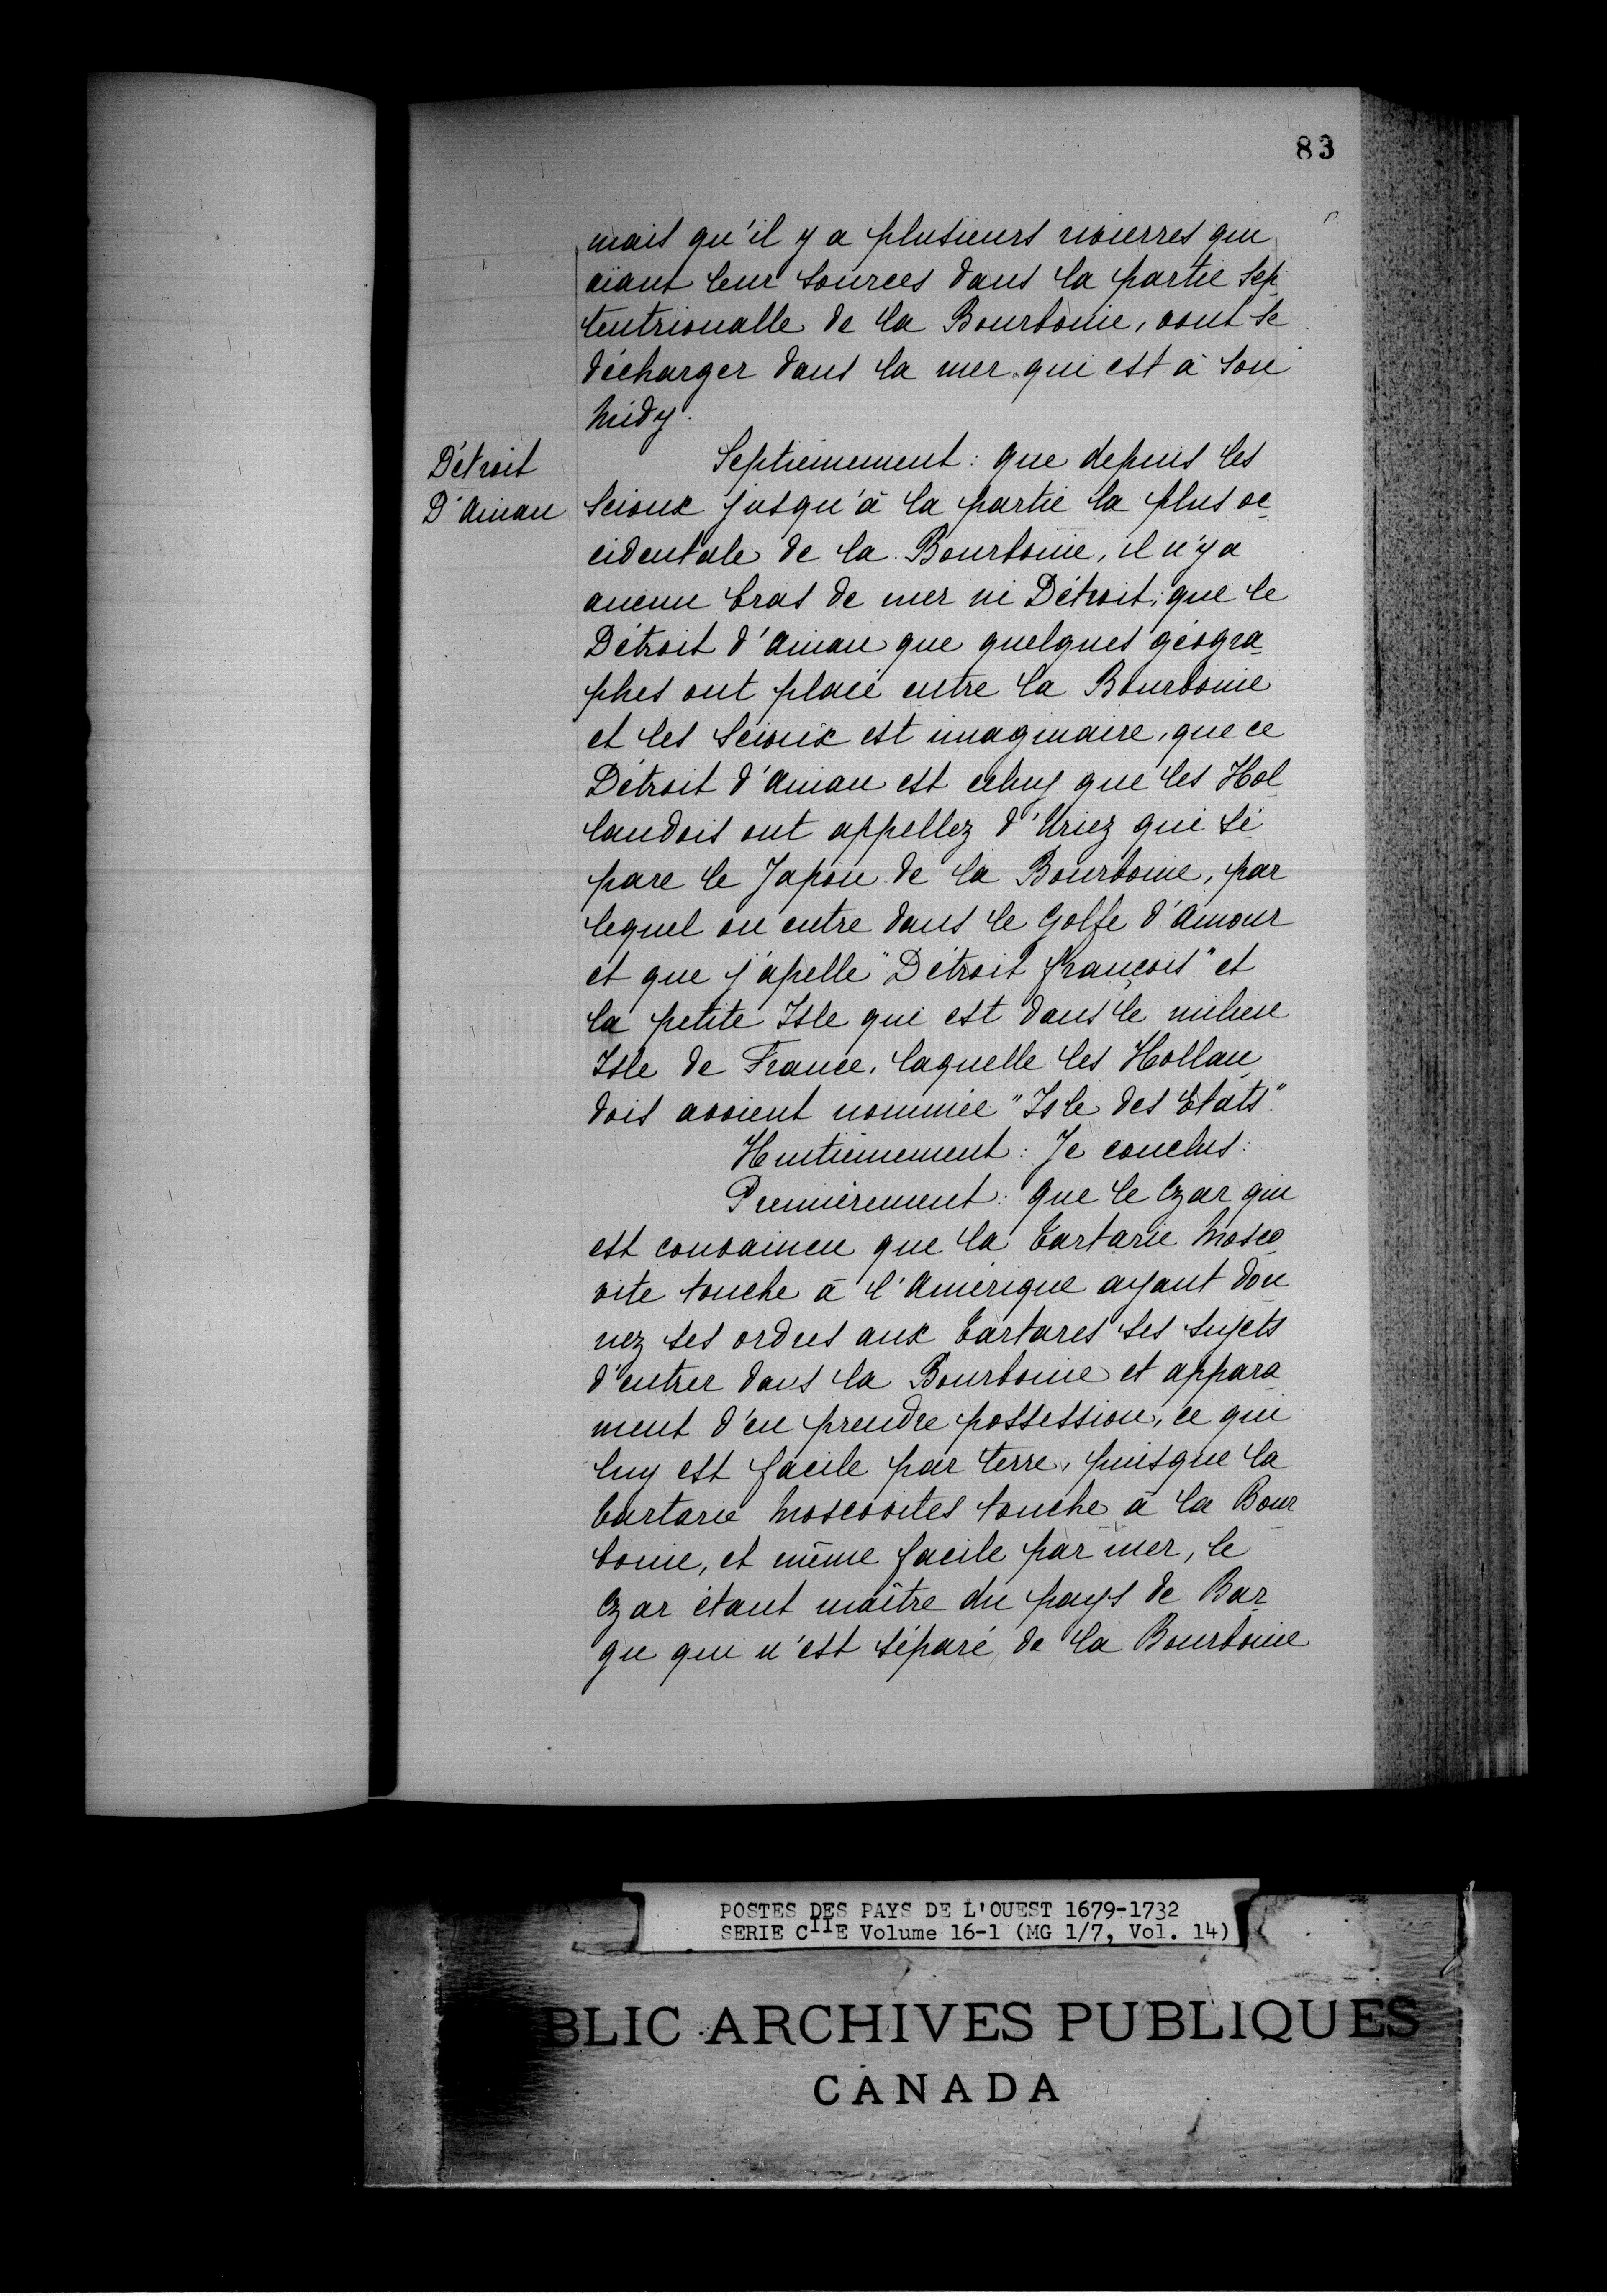 83
mais qu'il y a plusieurs rivierres qui
aiant leur sources dans la partie sep-
tentrionalle de la Bourbonie, vont se
décharger dans la mer qui est à son
midy.
Détroit
D'Anian
Septièmement: que depuis les
Scioux jusqu'à la partie la plus oc-
cidentale de la Bourbonie, il n'y a
aucun bras de mer ni Détroit; que le
Détroit d'Anian que quelques géogra-
phes ont placé entre la Bourbonie
et les Scioux est imaginaire, que ce
Détroit d'Anian est celuy que les Hol-
landois ont appellez d'Uriez qui sé-
pare le Japon de la Bourbonie, par
lequel on entre dans le Golfe d'Amour
et que j'apelle "Détroit françois" et
la petite Isle qui est dans le milieu
Isle de France, laquelle les Hollan-
dois avoient nommée "Isle des Etats".
Huitièmement: Je conclus:
Premièrement: que le Czar qui
est convaincu que la Tartarie Mosco-
vite touche à l'Amérique ayant don-
nez ses ordres aux Tartares ses sujets
d'entrer dans la Bourbonie et appara-
ment d'en prendre possession, ce qui
luy est facile par terre, puisque la
Tartarie Moscovites touche à la Bour-
bonie, et même facile par mer, le
Czar étant maître du pays de Bar-
gu qui n'est séparé de la Bourbonie
POSTES DES PAYS DE L'OUEST 1679-1732
SERIE CIIE Volume 16-1 (MG 1/7, Vol. 14)
BLIC ARCHIVES PUBLIQUES
CANADA